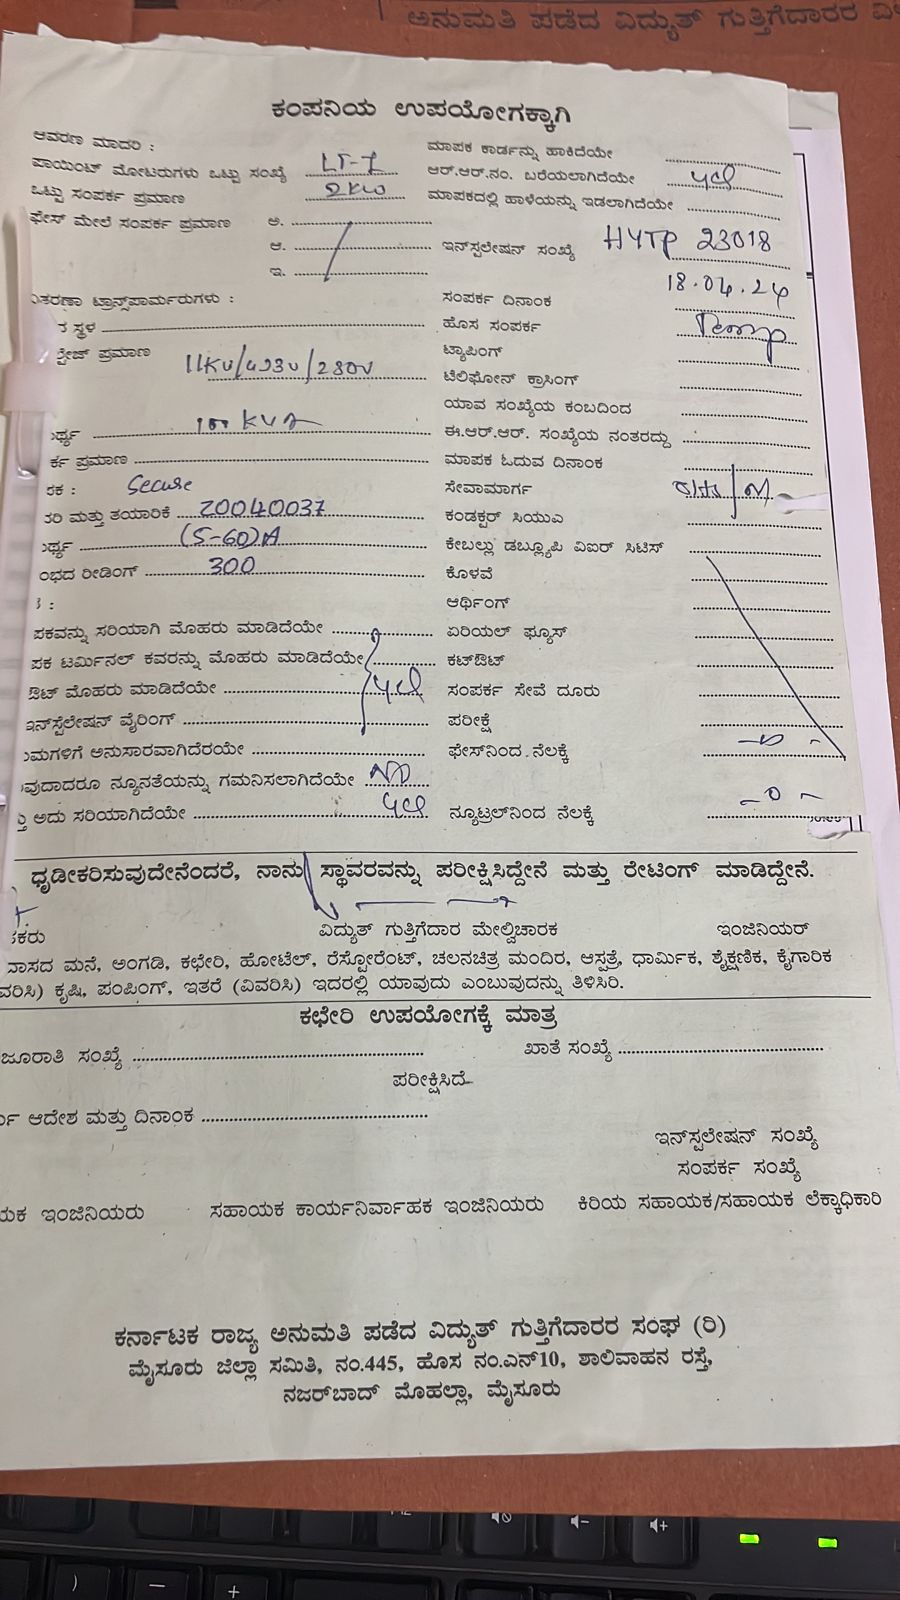 ಅನುಮತಿ ಪಡೆದ ವಿದ್ಯುತ್ ಗುತ್ತಿಗೆದಾರರ
ಕಂಪನಿಯ ಉಪಯೋಗಕ್ಕಾಗಿ
ಆವರಣ ಮಾದರಿ :
ಮಾಪಕ ಕಾರ್ಡನ್ನು ಹಾಕಿದೆಯೇ
ಪಾಯಿಂಟ್ ಮೋಟರುಗಳು ಒಟ್ಟು ಸಂಖ್ಯೆ LT-7
ಆರ್.ಆರ್.ನಂ. ಬರೆಯಲಾಗಿದೆಯೇ yes
ಒಟ್ಟು ಸಂಪರ್ಕ ಪ್ರಮಾಣ 2KW
ಮಾಪಕದಲ್ಲಿ ಹಾಳೆಯನ್ನು ಇಡಲಾಗಿದೆಯೇ
ಫೇಸ್ ಮೇಲೆ ಸಂಪರ್ಕ ಪ್ರಮಾಣ ಅ.
ಆ.
ಇನ್‌ಸ್ಟಲೇಷನ್ ಸಂಖ್ಯೆ HYTP 23018
ಇ.
ತರಣಾ ಟ್ರಾನ್ಸ್‌ಪಾರ್ಮರುಗಳು :
ಸಂಪರ್ಕ ದಿನಾಂಕ 18.04.24
ಸ್ಥಳ
ಹೊಸ ಸಂಪರ್ಕ Temp
ಪ್ರಮಾಣ 11KV/433V/230V
ಟ್ಯಾಪಿಂಗ್
ಟೆಲಿಫೋನ್ ಕ್ರಾಸಿಂಗ್
ಯಾವ ಸಂಖ್ಯೆಯ ಕಂಬದಿಂದ
100 KVA
ಈ.ಆರ್.ಆರ್. ಸಂಖ್ಯೆಯ ನಂತರದ್ದು
ಪ್ರಮಾಣ
ಮಾಪಕ ಓದುವ ದಿನಾಂಕ
ರಕ : Secure
ಸೇವಾಮಾರ್ಗ
ತರಿ ಮತ್ತು ತಯಾರಿಕೆ 20040037
ಕಂಡಕ್ಟರ್ ಸಿಯುಎ
(5-60)A
ಕೇಬಲ್ಲು ಡಬ್ಲ್ಯೂಪಿ ವಿಐರ್ ಸಿಟಿಸ್
ಂಭದ ರೀಡಿಂಗ್ 300
ಕೊಳವೆ
ಆರ್ಥಿಂಗ್
ಪಕವನ್ನು ಸರಿಯಾಗಿ ಮೊಹರು ಮಾಡಿದೆಯೇ
ಏರಿಯಲ್ ಫ್ಯೂಸ್
ಪಕ ಟರ್ಮಿನಲ್ ಕವರನ್ನು ಮೊಹರು ಮಾಡಿದೆಯೇ
ಕಟ್‌ಔಟ್
ಔಟ್ ಮೊಹರು ಮಾಡಿದೆಯೇ yes
ಸಂಪರ್ಕ ಸೇವೆ ದೂರು
ಇನ್‌ಸ್ಟಲೇಷನ್ ವೈರಿಂಗ್
ಪರೀಕ್ಷೆ
ಮಗಳಿಗೆ ಅನುಸಾರವಾಗಿದೆರಯೇ
ಫೇಸ್‌ನಿಂದ ನೆಲಕ್ಕೆ -0-
ವುದಾದರೂ ನ್ಯೂನತೆಯನ್ನು ಗಮನಿಸಲಾಗಿದೆಯೇ NO
ಅದು ಸರಿಯಾಗಿದೆಯೇ yes
ನ್ಯೂಟ್ರಲ್‌ನಿಂದ ನೆಲಕ್ಕೆ -0-
ಧೃಡೀಕರಿಸುವುದೇನೆಂದರೆ, ನಾನು ಸ್ಥಾವರವನ್ನು ಪರೀಕ್ಷಿಸಿದ್ದೇನೆ ಮತ್ತು ರೇಟಿಂಗ್ ಮಾಡಿದ್ದೇನೆ.
ಕರು ವಿದ್ಯುತ್ ಗುತ್ತಿಗೆದಾರ ಮೇಲ್ವಿಚಾರಕ ಇಂಜಿನಿಯರ್
ವಾಸದ ಮನೆ, ಅಂಗಡಿ, ಕಛೇರಿ, ಹೋಟೆಲ್, ರೆಸ್ಟೋರೆಂಟ್, ಚಲನಚಿತ್ರ ಮಂದಿರ, ಆಸ್ಪತ್ರೆ, ಧಾರ್ಮಿಕ, ಶೈಕ್ಷಣಿಕ, ಕೈಗಾರಿಕ
ವರಿಸಿ) ಕೃಷಿ, ಪಂಪಿಂಗ್, ಇತರೆ (ವಿವರಿಸಿ) ಇದರಲ್ಲಿ ಯಾವುದು ಎಂಬುವುದನ್ನು ತಿಳಿಸಿರಿ.
ಕಛೇರಿ ಉಪಯೋಗಕ್ಕೆ ಮಾತ್ರ
ಜೂರಾತಿ ಸಂಖ್ಯೆ ಖಾತೆ ಸಂಖ್ಯೆ
ಪರೀಕ್ಷಿಸಿದೆ
ಆದೇಶ ಮತ್ತು ದಿನಾಂಕ
ಇನ್‌ಸ್ಟಲೇಷನ್ ಸಂಖ್ಯೆ
ಸಂಪರ್ಕ ಸಂಖ್ಯೆ
ಯಕ ಇಂಜಿನಿಯರು ಸಹಾಯಕ ಕಾರ್ಯನಿರ್ವಾಹಕ ಇಂಜಿನಿಯರು ಕಿರಿಯ ಸಹಾಯಕ/ಸಹಾಯಕ ಲೆಕ್ಕಾಧಿಕಾರಿ
ಕರ್ನಾಟಕ ರಾಜ್ಯ ಅನುಮತಿ ಪಡೆದ ವಿದ್ಯುತ್ ಗುತ್ತಿಗೆದಾರರ ಸಂಘ (ರಿ)
ಮೈಸೂರು ಜಿಲ್ಲಾ ಸಮಿತಿ, ನಂ.445, ಹೊಸ ನಂ.ಎನ್10, ಶಾಲಿವಾಹನ ರಸ್ತೆ,
ನಜರ್‌ಬಾದ್ ಮೊಹಲ್ಲಾ, ಮೈಸೂರು